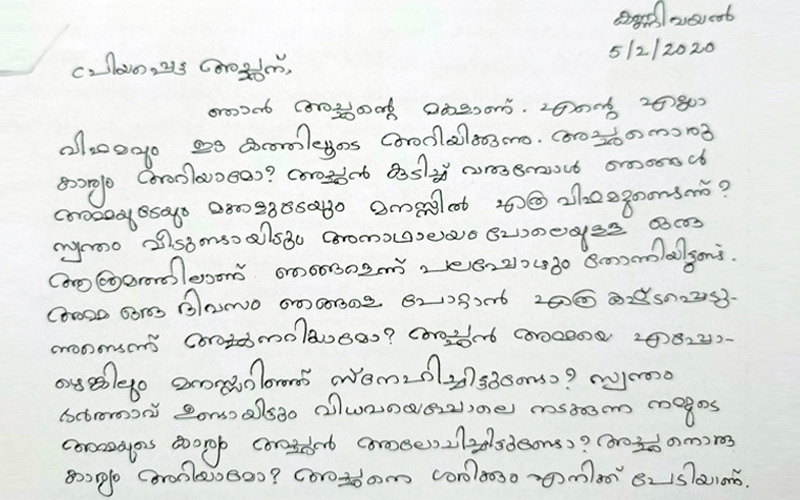 കണ്ണിവയൽ
5/2/2020
പ്രിയപ്പെട്ട അച്ഛന്,
ഞാൻ അച്ഛന്റെ മകളാണ്. എന്റെ എല്ലാ
വിഷമവും ഈ കത്തിലൂടെ അറിയിക്കുന്നു. അച്ഛനൊരു
കാര്യം അറിയാമോ? അച്ഛൻ കുടിച്ച് വരുമ്പോൾ ഞങ്ങൾ
അമ്മയുടേയും മക്കളുടേയും മനസ്സിൽ എത്ര വിഷമമുണ്ടെന്ന്?
സ്വന്തം വീടുണ്ടായിട്ടും അനാഥാലയം പോലെയുള്ള ഒരു
ആശ്രമത്തിലാണ് ഞങ്ങളെന്ന് പലപ്പോഴും തോന്നിയിട്ടുണ്ട്.
അമ്മ ഒരു ദിവസം ഞങ്ങളെ പോറ്റാൻ എത്ര കഷ്ടപ്പെടു-
ന്നുണ്ടെന്ന് അച്ഛനറിയാമോ? അച്ഛൻ അമ്മയെ എപ്പോ-
ഴെങ്കിലും മനസ്സറിഞ്ഞ് സ്നേഹിച്ചിട്ടുണ്ടോ? സ്വന്തം
ഭർത്താവ് ഉണ്ടായിട്ടും വിധവയെപ്പോലെ നടക്കുന്ന നമ്മുടെ
അമ്മയുടെ കാര്യം അച്ഛൻ ആലോചിച്ചിട്ടുണ്ടോ? അച്ഛനൊരു
കാര്യം അറിയാമോ? അച്ഛനെ ശരിക്കും എനിക്ക് പേടിയാണ്.